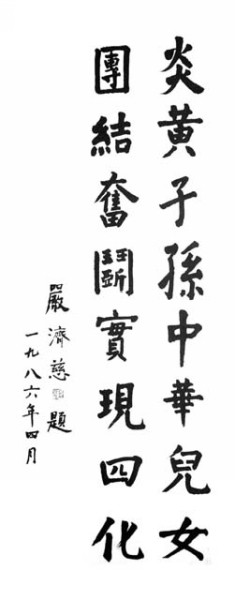 炎黄子孫中華兒女
團結奮鬭實現四化
嚴濟慈題
一九八六年四月